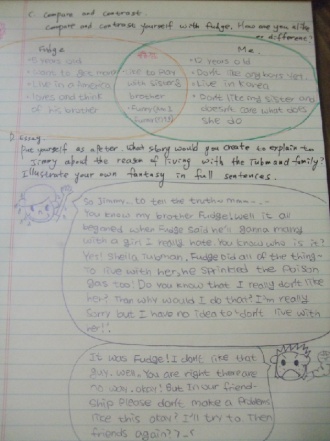 C. Compare and contrast.
Compare and contrast yourself with Fudge. How are you alike
or different?
Fudge
Me.
5 years old
12 years old
like to play
with
brother
Live in America
Live in Korea
loves and think
of his brother
Don't like my sister and
doesn't care what does
she do
D. Essay.
yourself as Peter. What story would you create to explain to
Jimmy about the reason of living with the Tubman family?
Illustrate your own fantasy in full sentences.
So Jimmy, to tell the truth man...
You know my brother Fudge! Well it all
begained when Fudge said he'll gonna marry
with a girl I really hate. You know who is it?
Yes! Sheila Tubman. Fudge did all of the thing
To live with her, he sprinkled the Poison
gas too! Do you know that I really don't like
her? Than why would I do that? I'm really
sorry but I have no idea to don't live with
her!!
It was Fudge! I don't like that
guy. Well. You are right there are
no way. okay! But in our friend-
ship Please don't make a problems
like this okay? I'll try to. Then
friends again?